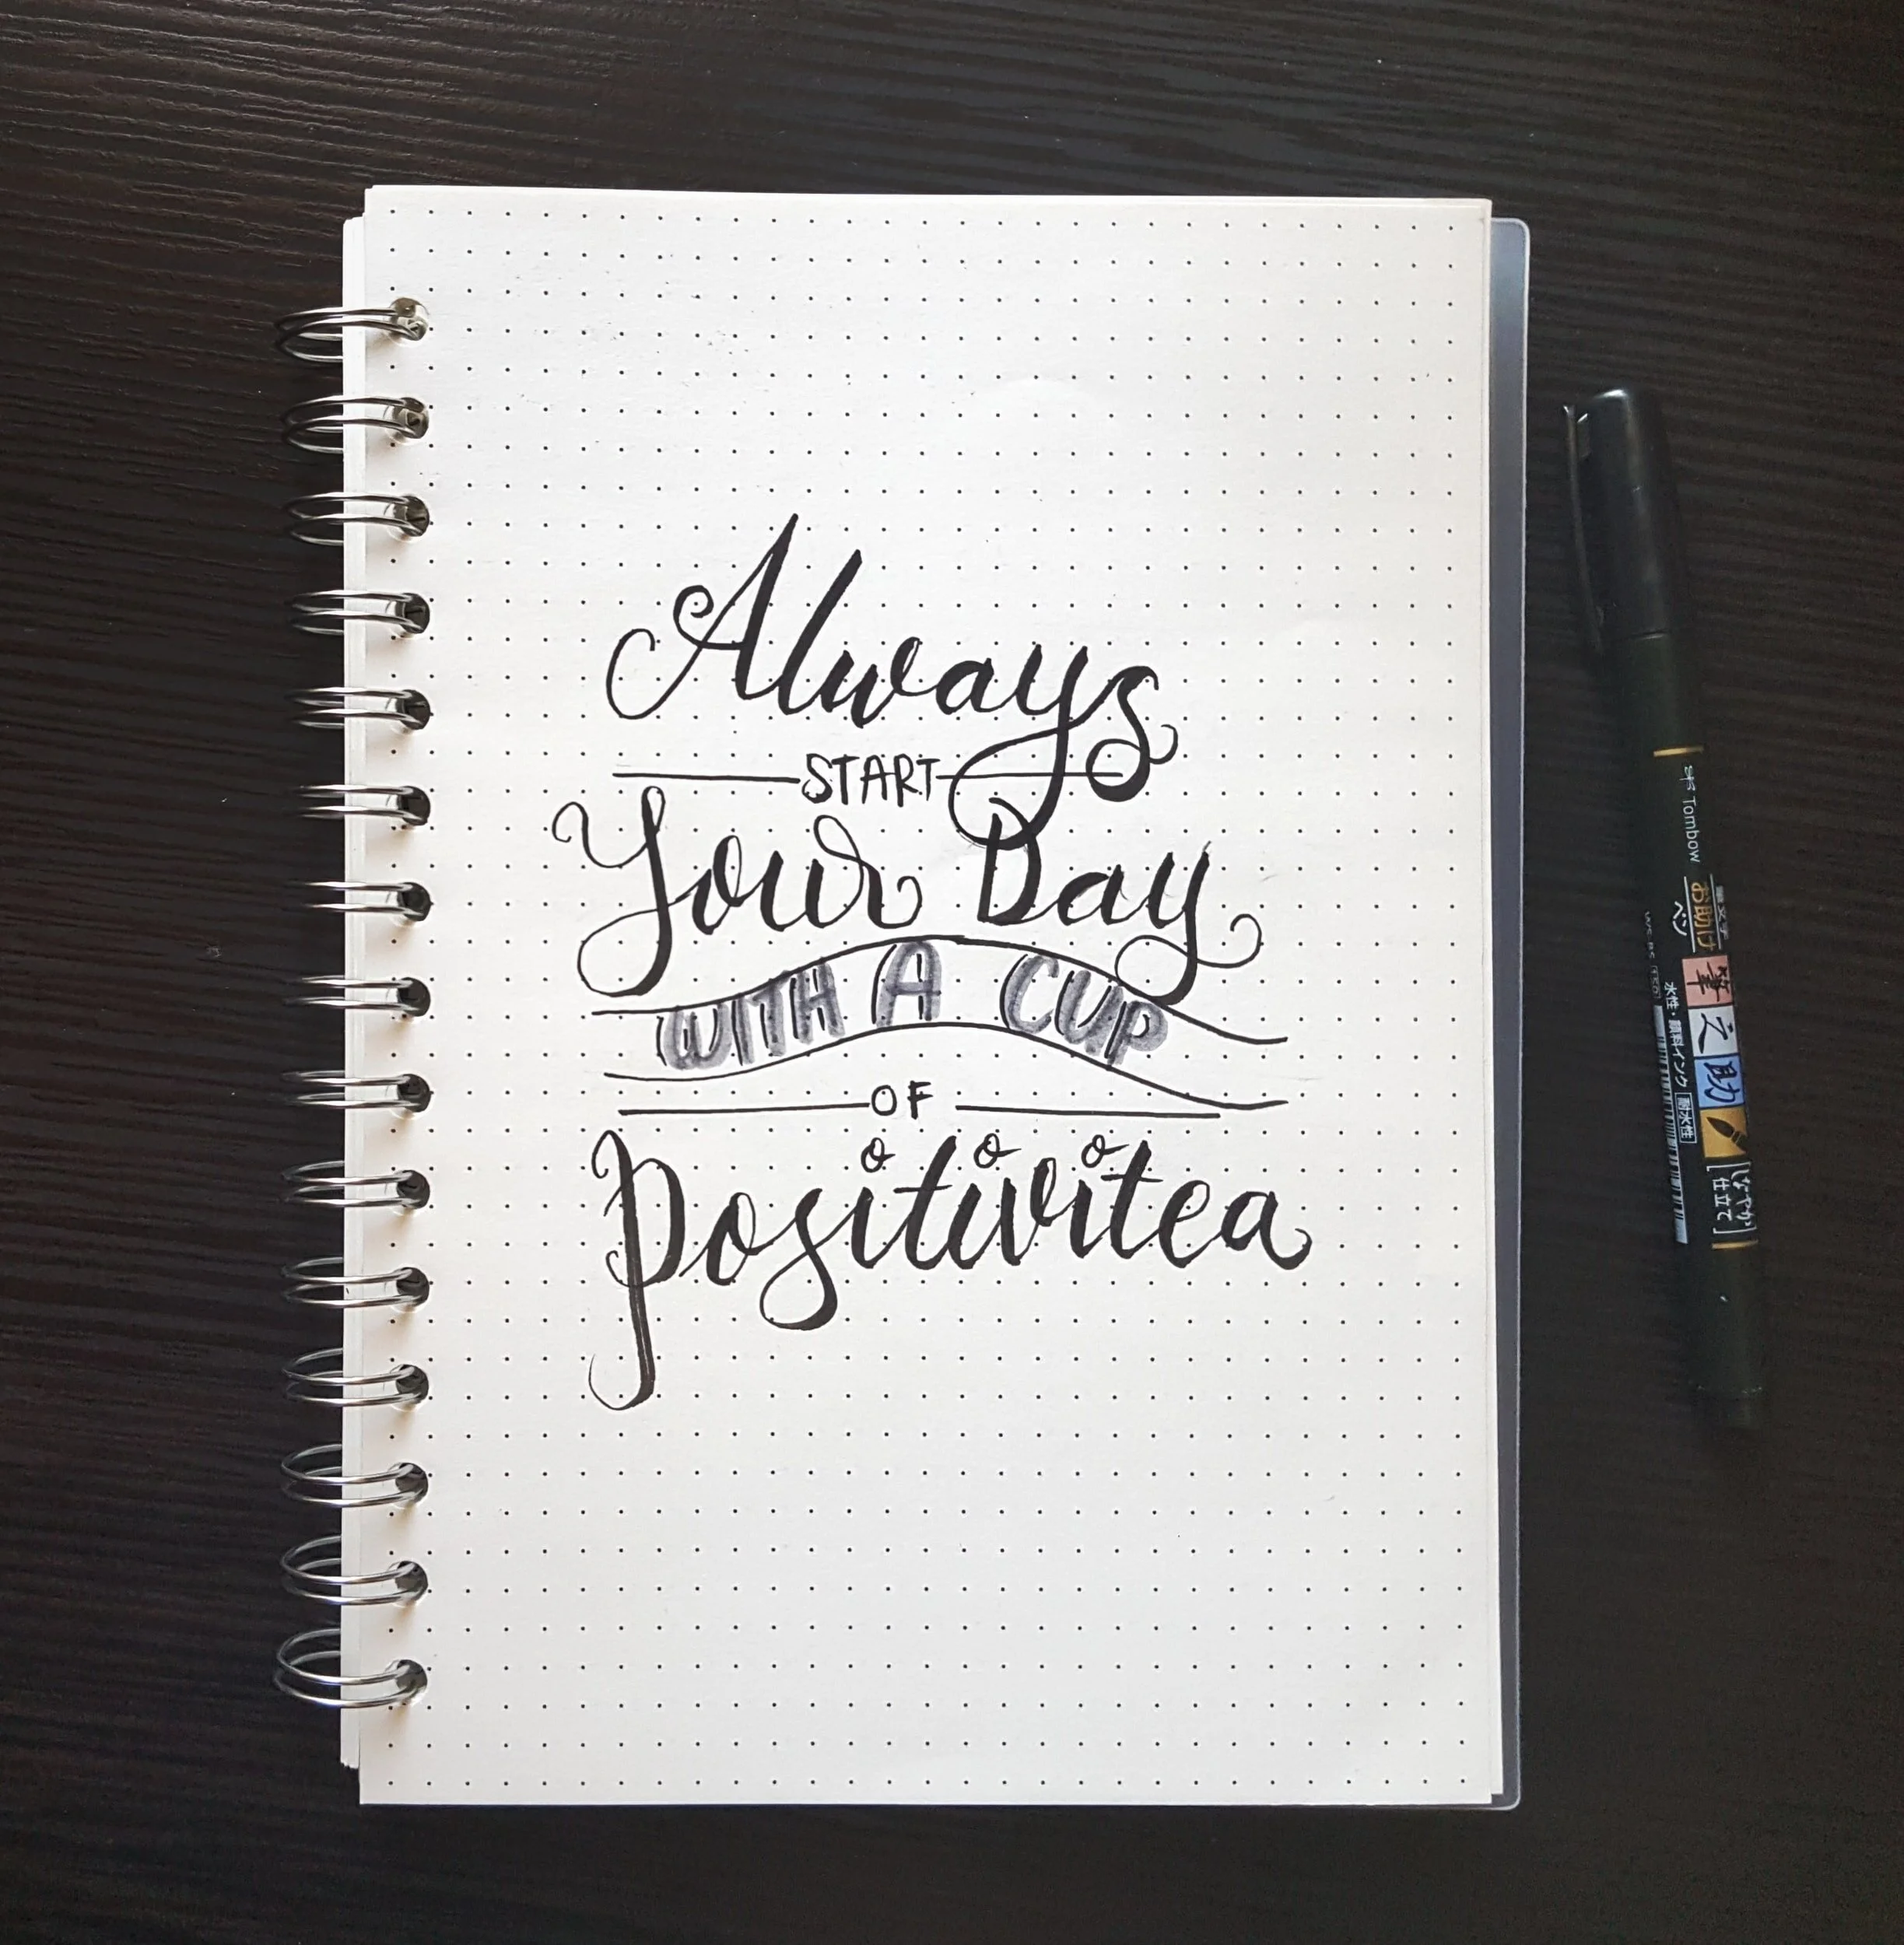 Always
START
Your Day
WITH A CUP
OF
Positivitea
Tombow
お助け
ペン
筆之助
水性・顔料インク 耐水性
しなやか
仕立て